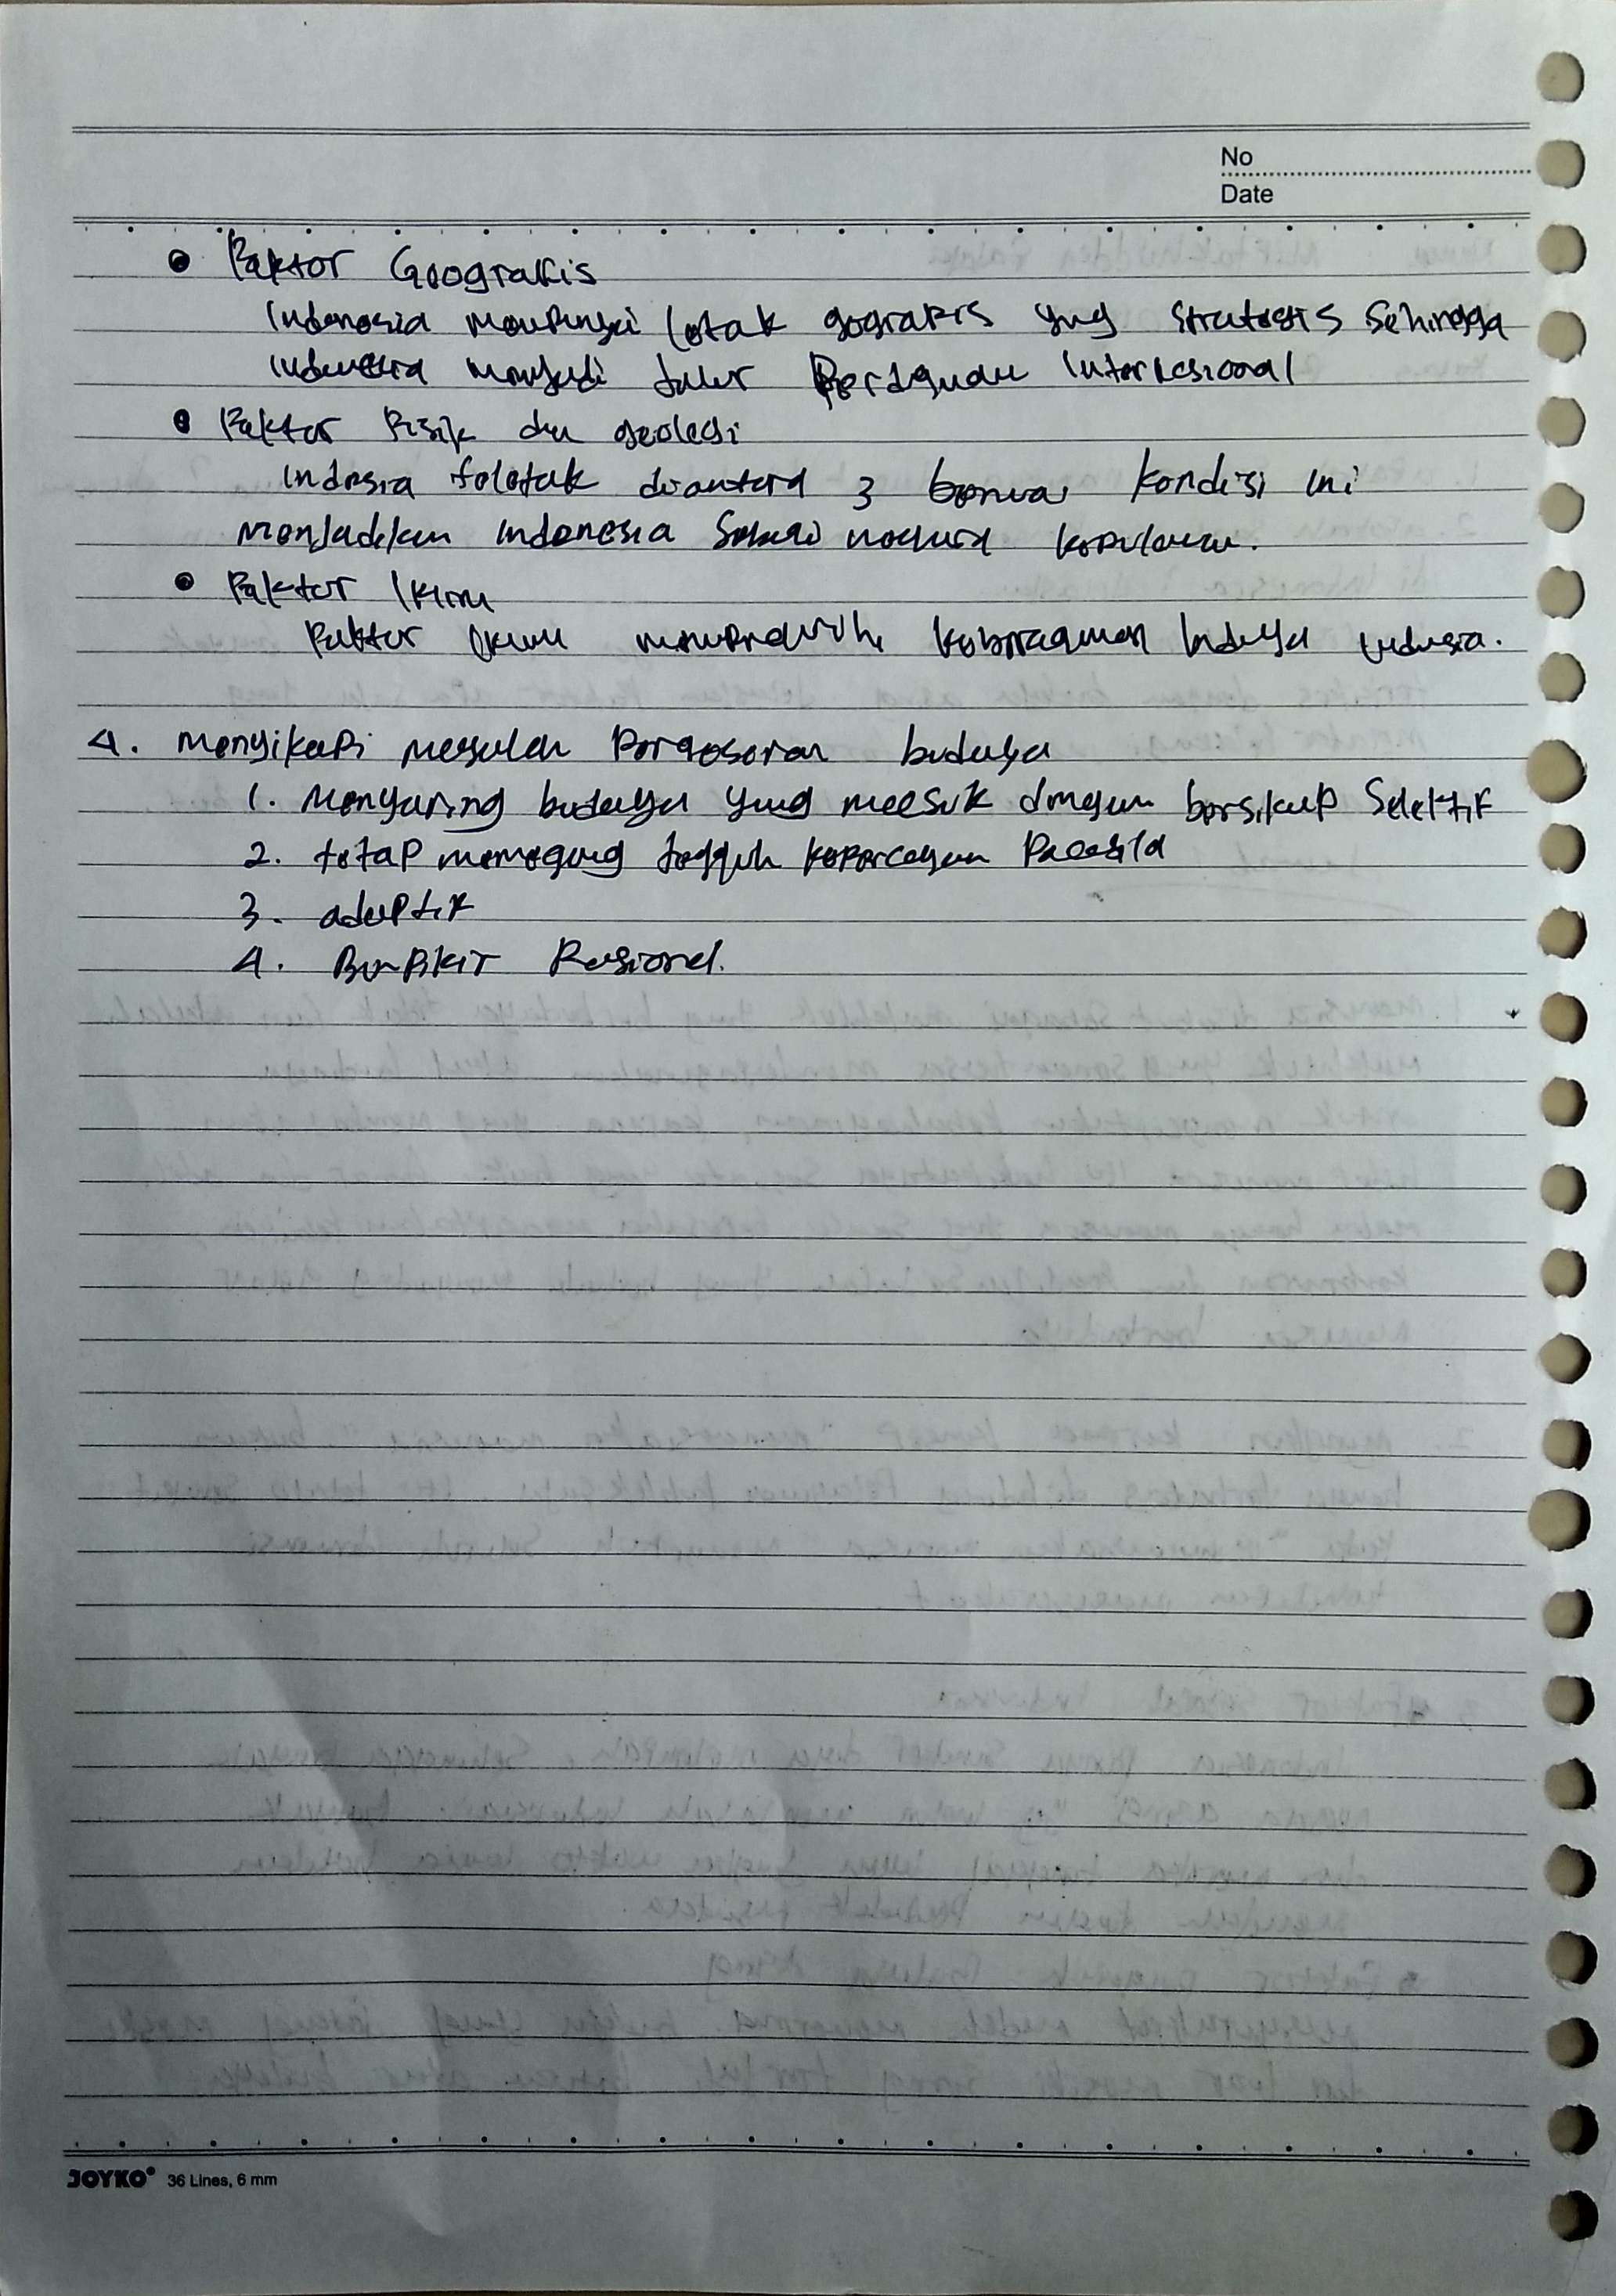 No
Date
• Faktor Geografis
Indonesia mempunyai letak gografis yng strategis sehingga
menjadi jalur Perdagangan Internasional
• Faktor Fisik dan geologi
Indosia teletak diantara 3 benua kondisi ini
Menjadikan Indonesia Sebagai negara kepulauan.
• Faktor Iklim
Faktor iklim keberagaman budaya
4. Menyikapi masalah Pergeseran budaya
1. Menyaring budaya yang masuk dengan bersikap Selektif
2. tetap memegang teguh kepercayaan
3. adaptif
4. Berfikir Rasional.
JOYKO 36 Lines, 6 mm